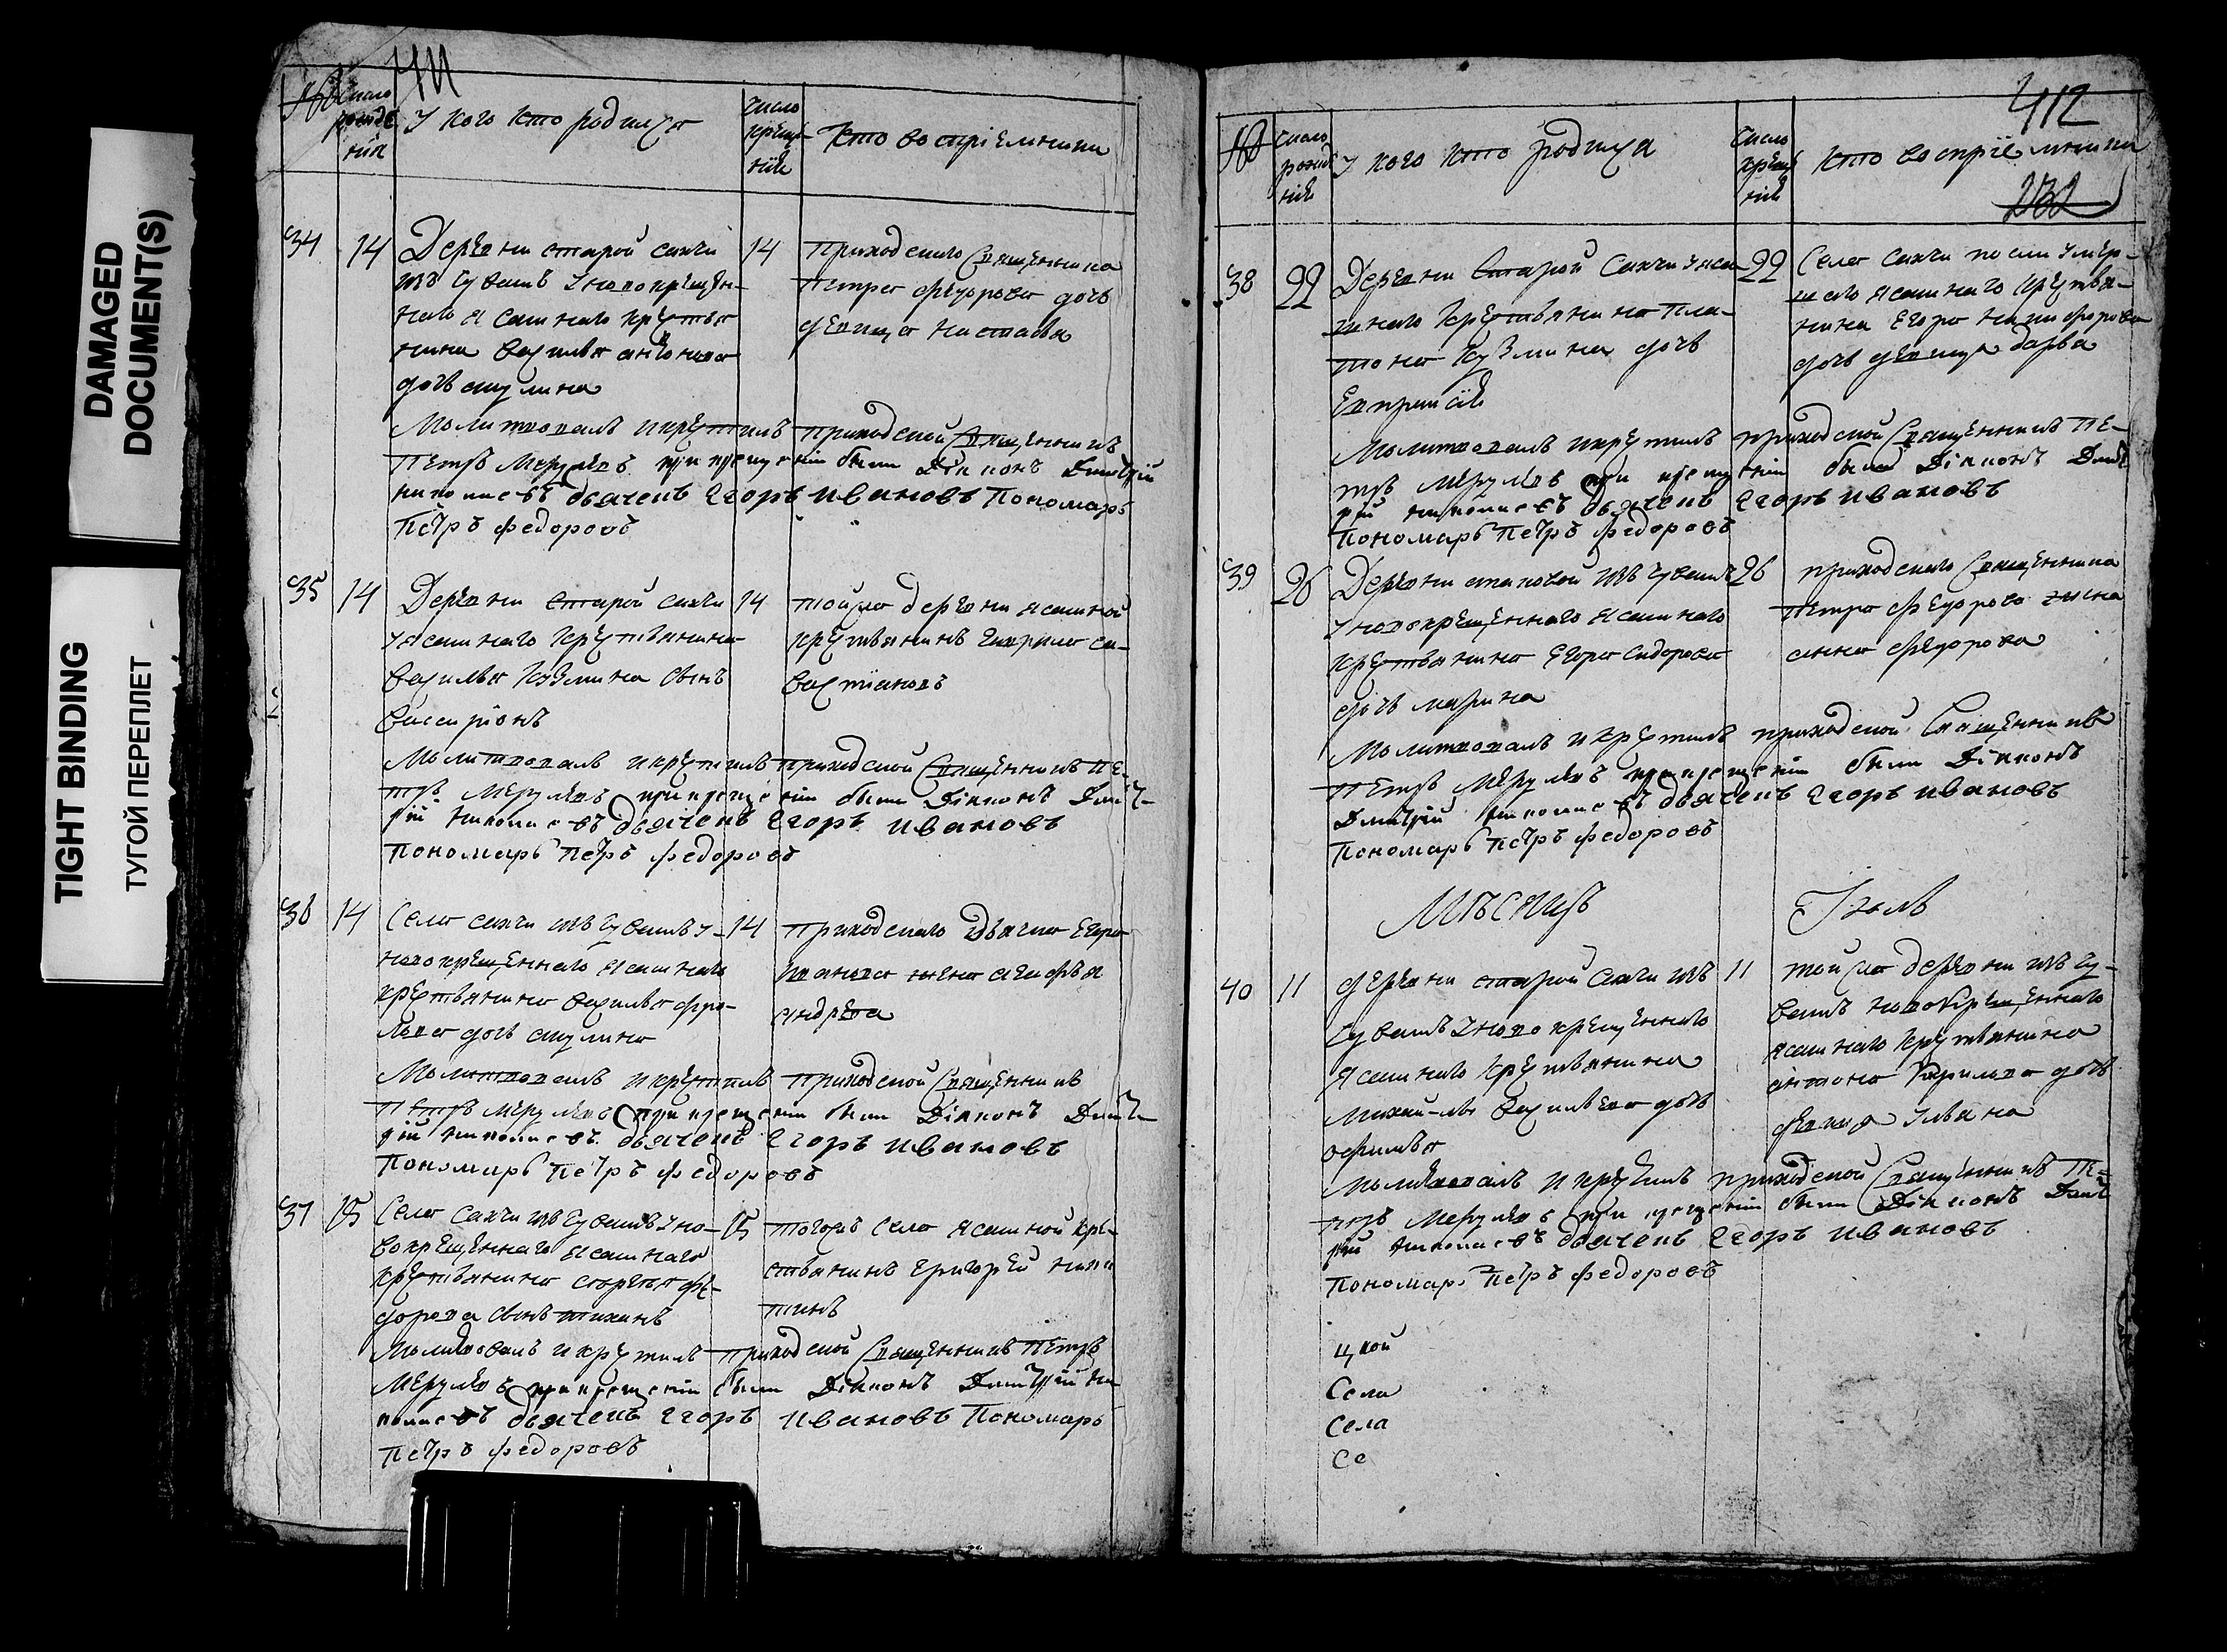 DAMAGED
DOCUMENT(S)
TIGHT BINDING
ТУГОЙ ПЕРЕПЛЕТ
411
№
число рождения
У кого кто родился
число крещения
Кто восприемники
34
14
Деревни старой сахчи
изъ чувашъ у новокрещен-
наго ясашнаго крестья
нина василья антонова
дочь акулина
14
приходскаго священника
петра федорова дочь
девица настасья
Молитвовалъ и крестилъ приходской священникъ
петръ Меркулевъ при крещенiи были Дiаконъ Димитрiй
дьячекъ Егоръ Ивановъ Пономарь
Петръ Федоровъ
35
14
Деревни старой сахчи
у ясашнаго крестьянина
василья козмина сынъ
висарiонъ
14
той же деревни ясашной
крестьянинъ гаврила са-
вастiановъ
Молитвовалъ и крестилъ приходской священникъ пе-
тръ Меркулевъ при крещенiи были Дiаконъ Димит-
рiй дьячекъ Егоръ Ивановъ
Пономарь Петръ Федоровъ
36
14
Села сахчи изъ чувашъ у
новокрещеннаго ясашнаго
крестьянина василья фро-
лова дочь акулина
14
приходскаго дьячка Егора
иванова жена агафья
андреева
Молитвовалъ и крестилъ приходской священникъ
петръ Меркулевъ при крещенiи были Дiаконъ Димит
рiй дьячекъ Егоръ Ивановъ
Пономарь Петръ Федоровъ
37
15
Села сахчи изъ чувашъ у но-
вокрещеннаго ясашнаго
крестьянина сергея фе-
дорова сынъ тихонъ
15
тогожъ села ясашной кре-
стьянинъ григорей ники
тинъ
Молитвовалъ и крестилъ приходской священникъ петръ
Меркулевъ при крещенiи были Дiаконъ Димитрiй
дьячекъ Егоръ Ивановъ Пономарь
Петръ Федоровъ
412
232
№
число рождения
У кого кто родился
число крещения
Кто восприемники
38
22
Деревни старой сахчи у яса-
шнаго крестьянина пла-
тона кузмина дочь
Евпраксiя
22
Села сахчи после умер-
шаго ясашнаго крестья-
нина Егора никифорова
дочь девица варва
Молитвовалъ и крестилъ приходской священникъ пе-
тръ Меркулевъ при крещенiи были Дiаконъ Димит
рiй дьячекъ Егоръ Ивановъ
Пономарь Петръ Федоровъ
39
26
Деревни изъ чувашъ
у новокрещеннаго ясашнаго
крестьянина Егора сидорова
дочь марина
26
приходскаго священника
петра федорова жена
анна федорова
Молитвовалъ и крестилъ приходской священникъ
петръ Меркулевъ при крещенiи были Дiаконъ
Димитрiй дьячекъ Егоръ Ивановъ
Пономарь Петръ Федоровъ
Мѣсяцъ Iюль
40
11
деревни старой сахчи изъ
чувашъ у новокрещеннаго
ясашнаго крестьянина
михайлы васильева дочь
офимья
11
той же деревни изъ чу-
вашъ новокрещеннаго
ясашнаго крестьянина
антона кирилова дочь
девица ульяна
Молитвовалъ и крестилъ приходской священникъ пе-
тръ Меркулевъ при крещенiи были Дiаконъ Димит
рiй дьячекъ Егоръ Ивановъ
Пономарь Петръ Федоровъ
цкой
Села
Села
Се